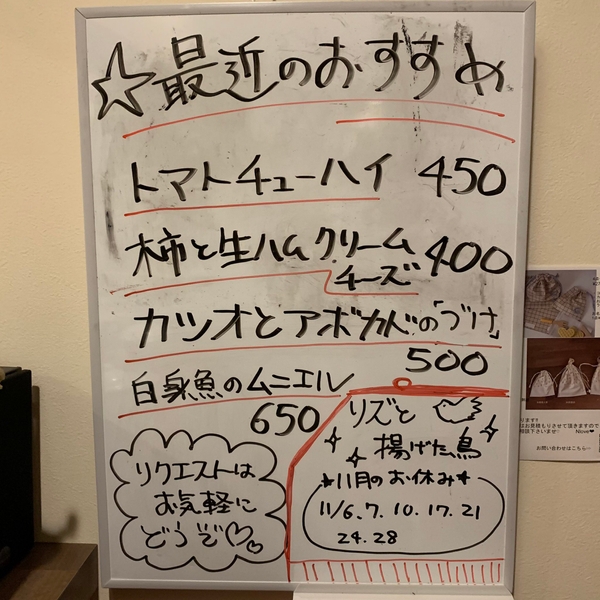 ☆最近のおすすめ
トマトチューハイ 450
柿と生ハムクリーム
チーズ 400
カツオとアボカドの「づけ」
500
白身魚のムニエル
650
リクエストは
お気軽に
どうぞ♡♡
リズと
揚げた鳥
*11月のお休み*
11/6.7.10.17.21
24.28
お問い合わせはこちら…